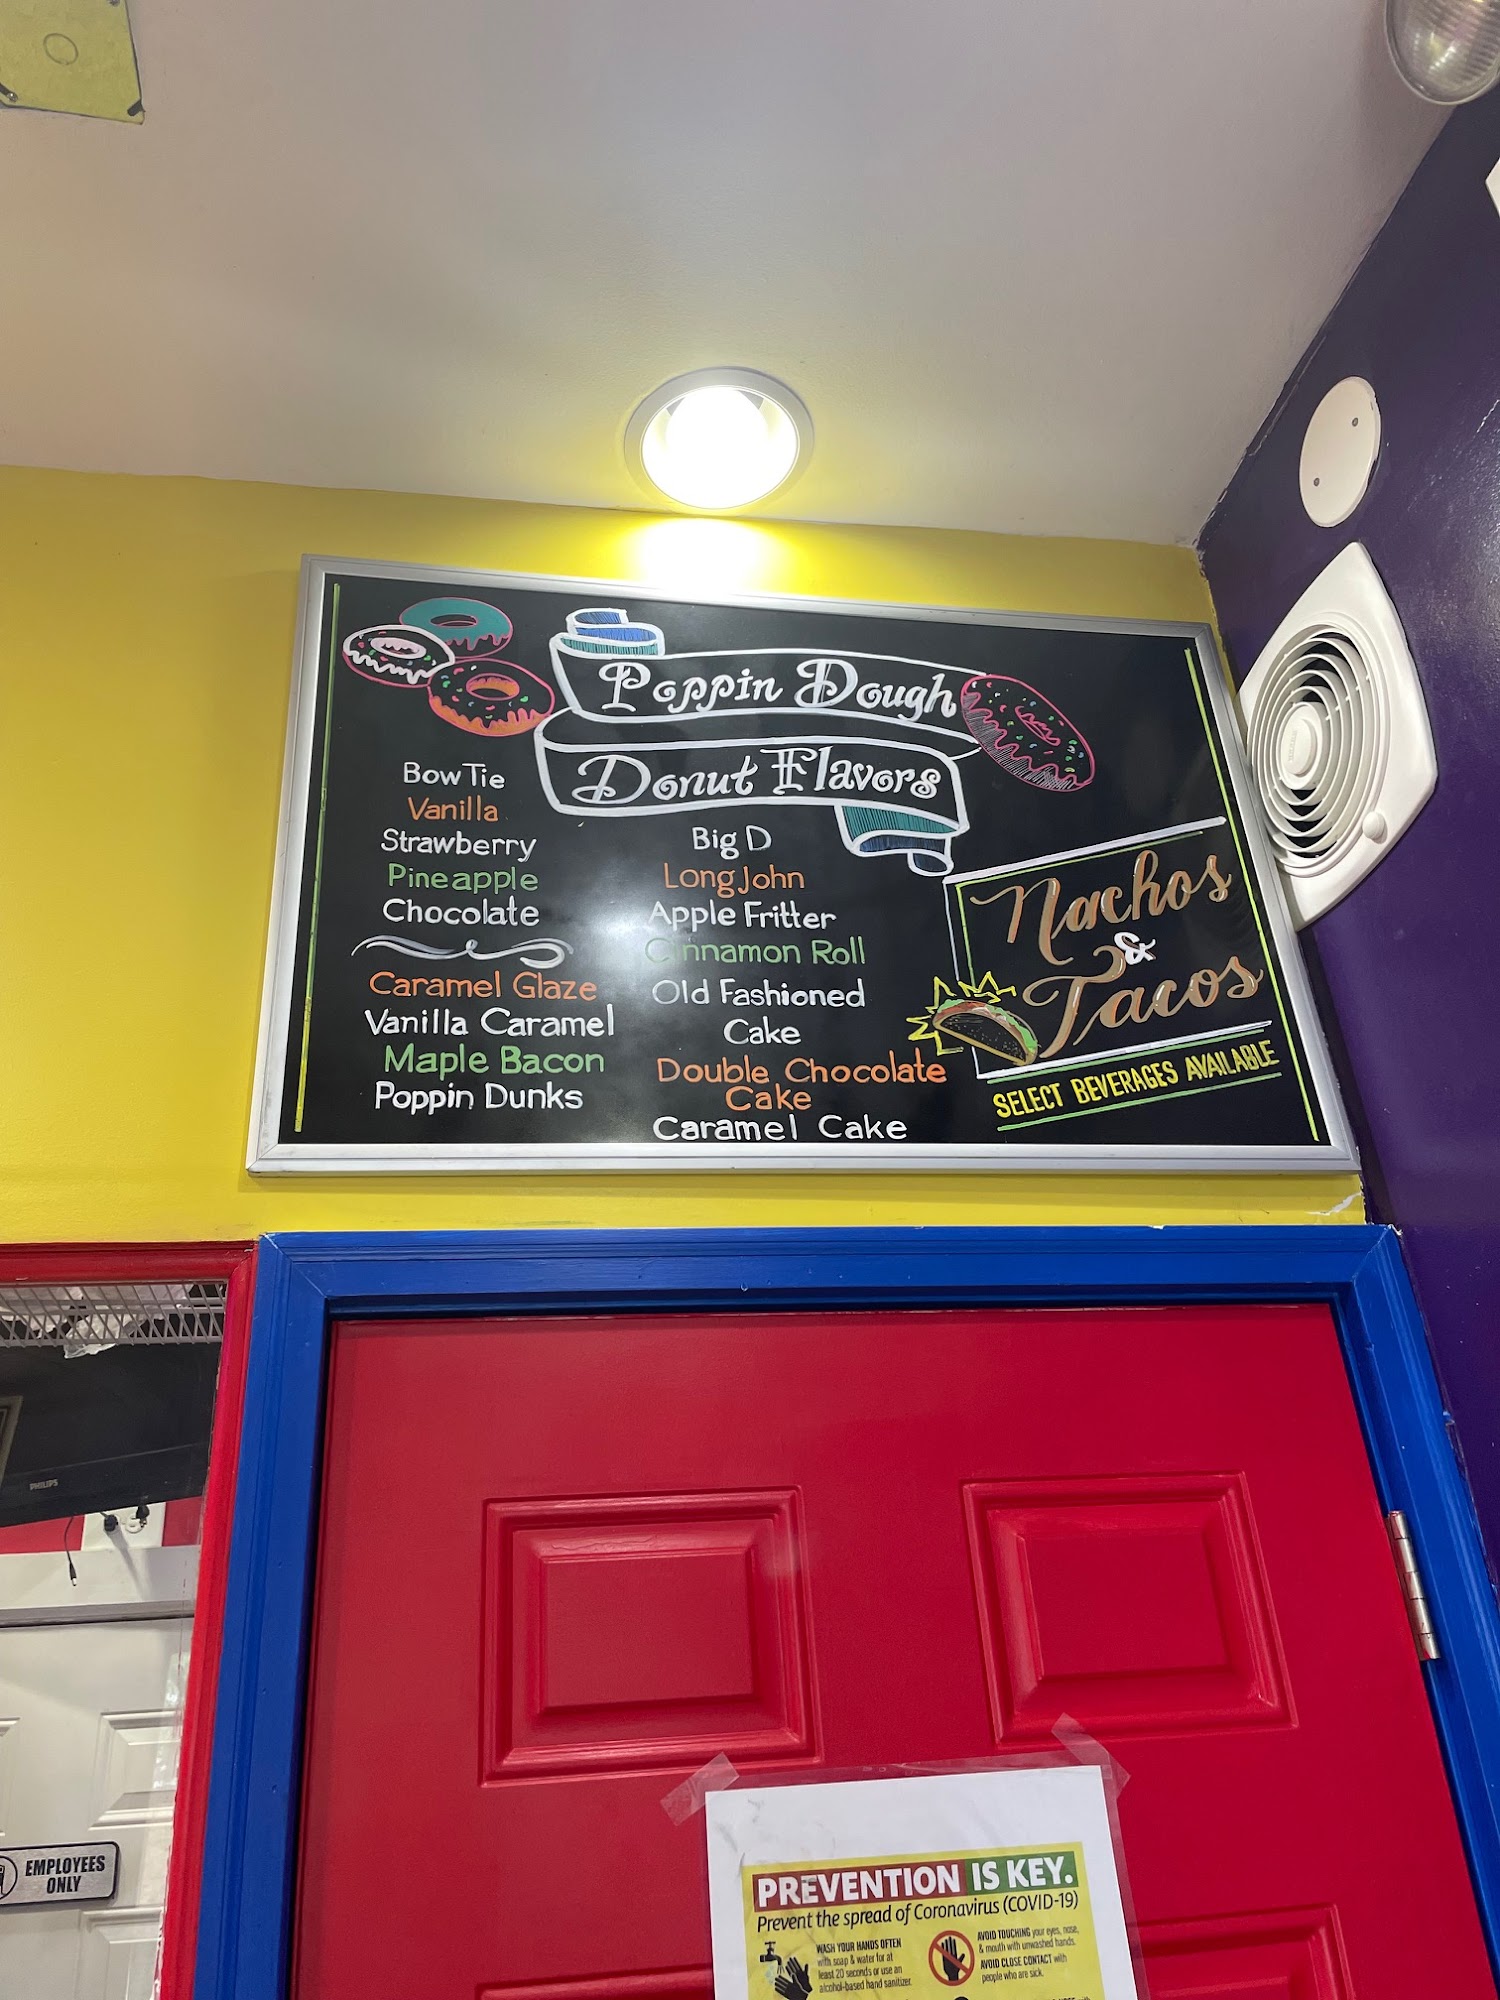 Poppin Dough
Donut Flavors
Bow Tie
Vanilla
Strawberry
Pineapple
Chocolate
Caramel Glaze
Vanilla Caramel
Maple Bacon
Poppin Dunks
Big D
Long John
Apple Fritter
Cinnamon Roll
Old Fashioned
Cake
Double Chocolate
Cake
Caramel Cake
Nachos
&
Tacos
SELECT BEVERAGES AVAILABLE
PHILIPS
EMPLOYEES
ONLY
PREVENTION IS KEY.
Prevent the spread of Coronavirus (COVID-19)
WASH YOUR HANDS OFTEN
with soap & water for at
least 20 seconds or use an
alcohol-based hand sanitizer.
AVOID TOUCHING your eyes, nose,
& mouth with unwashed hands.
AVOID CLOSE CONTACT with
people who are sick.